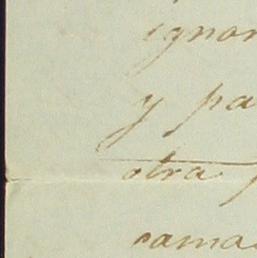 ignor
y pa
otra
cama